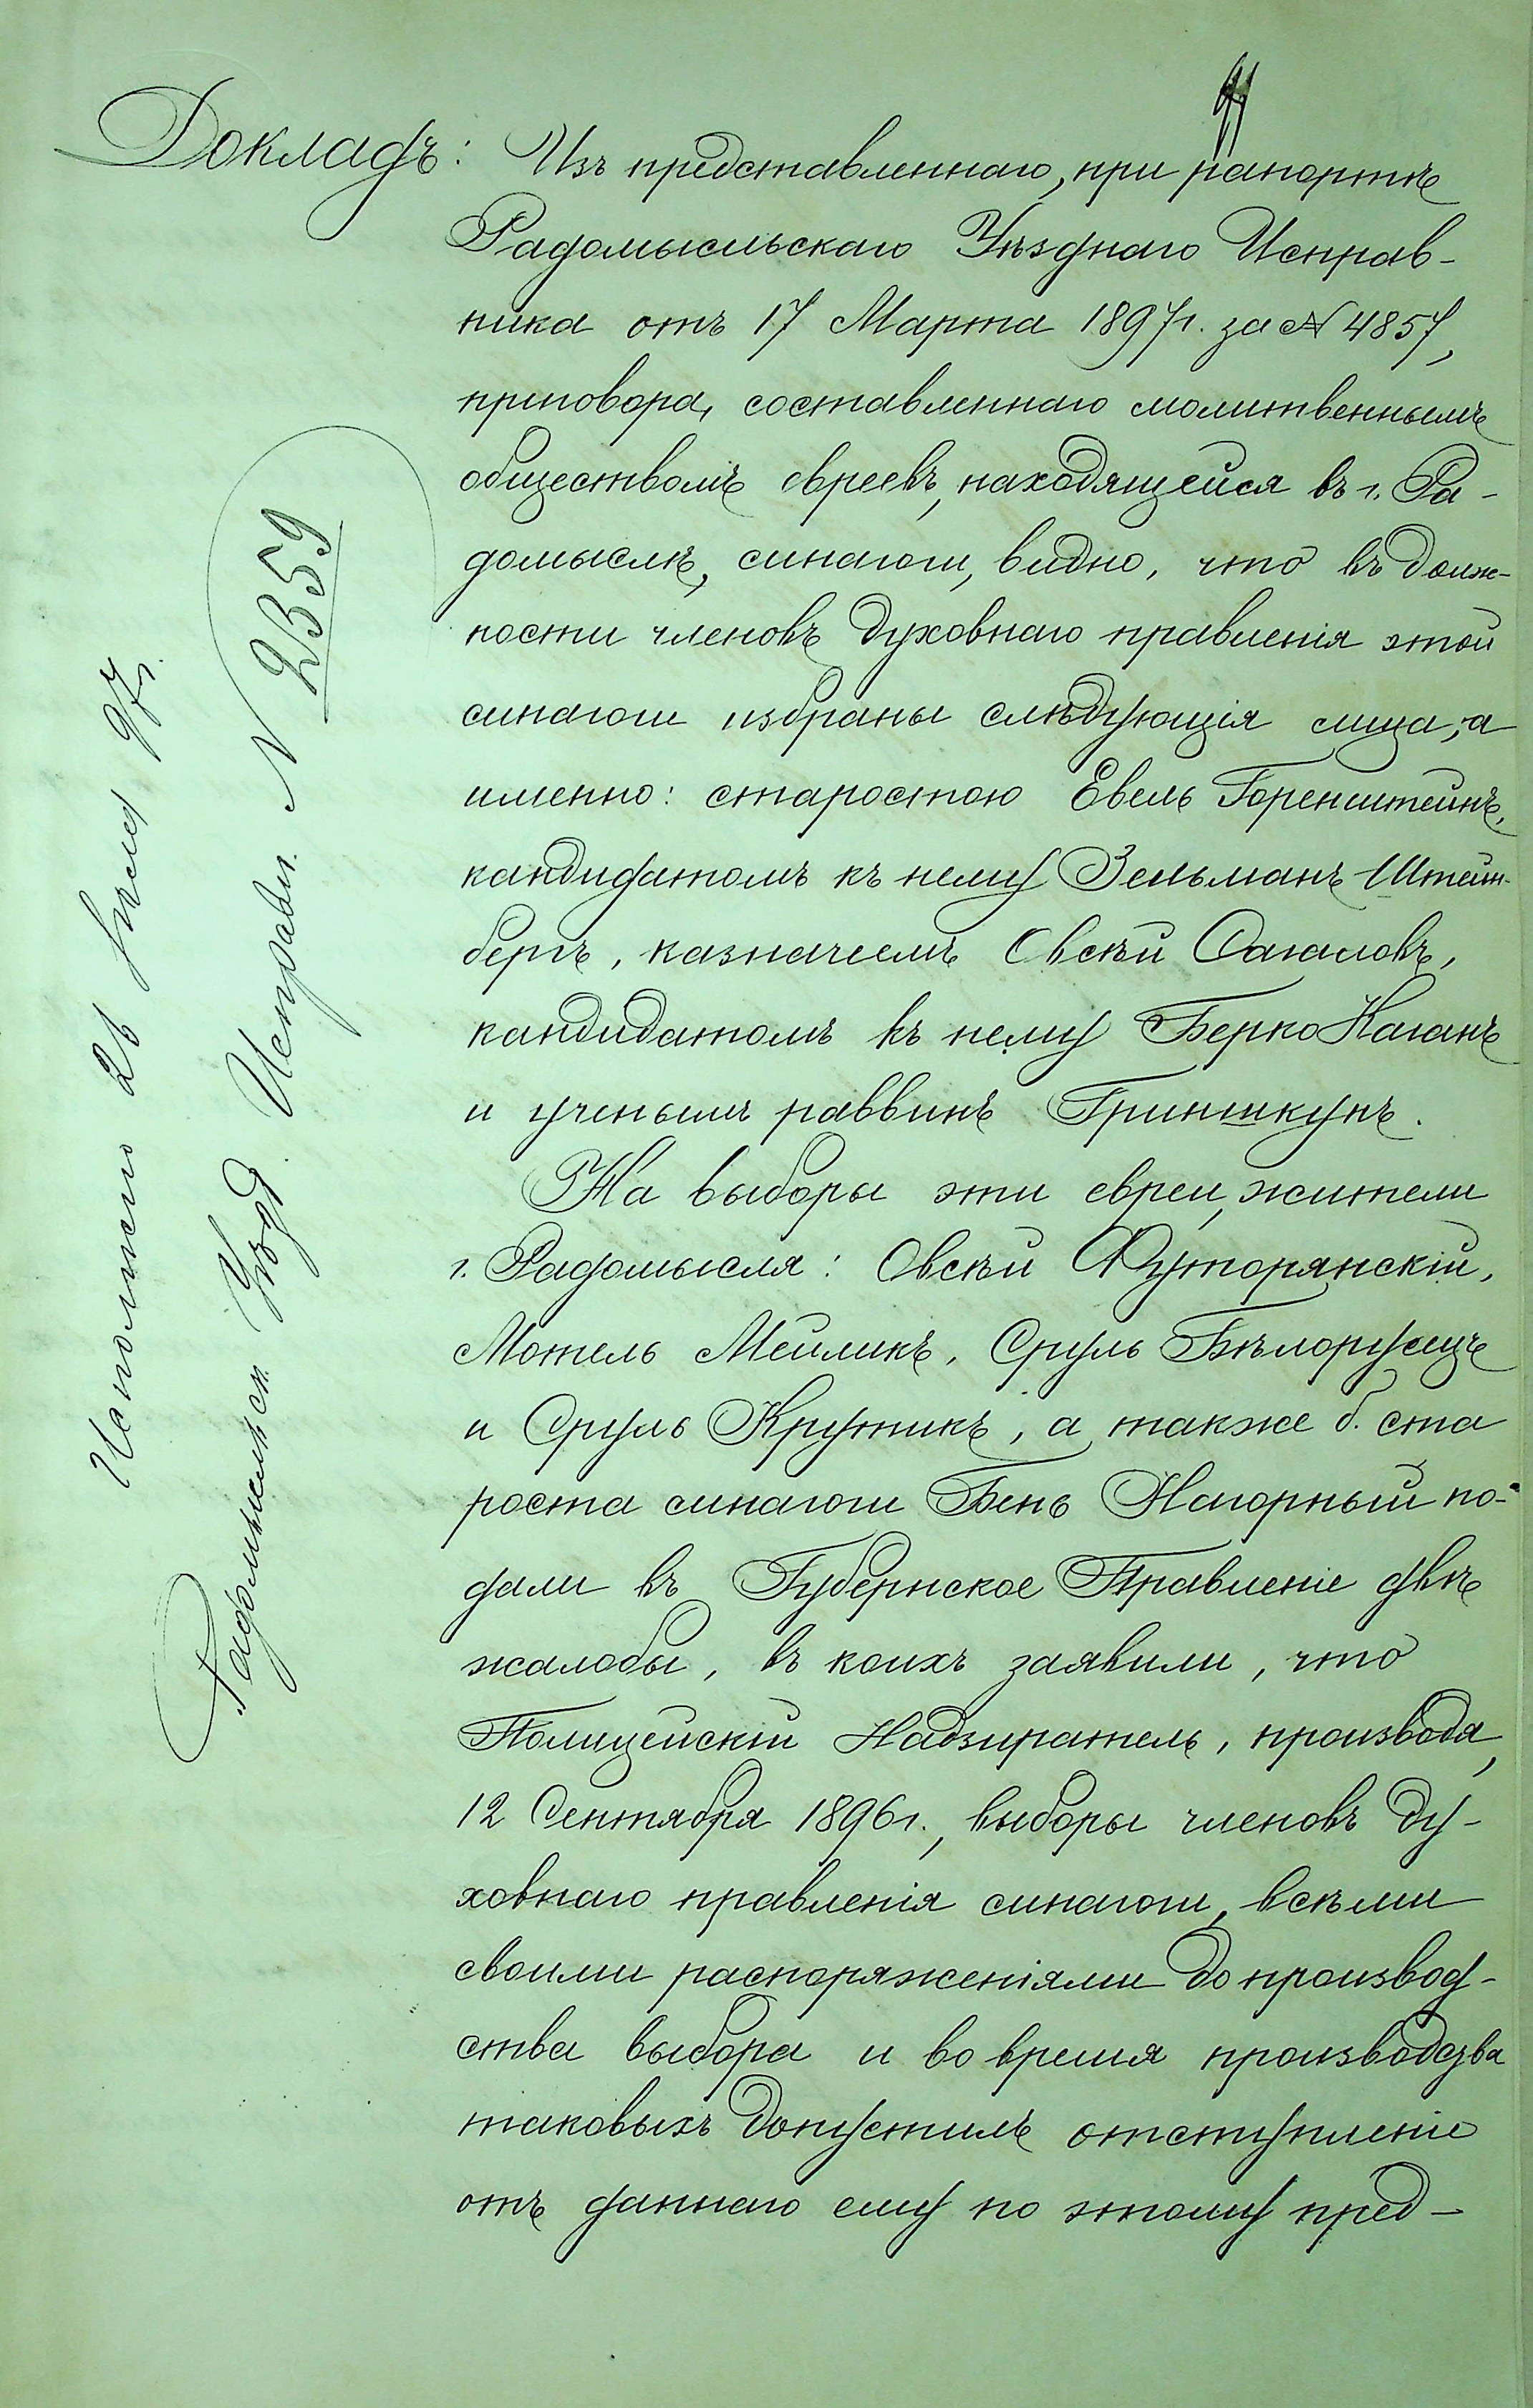 Докладъ: Изъ представленнаго, при рапортѣ
Радомысльскаго Уѣзднаго Исправ-
ника отъ 17 Марта 1897г. за № 4857,
приговора, составленнаго молитвеннымъ
обществомъ евреевъ, находящейся въ г. Ра-
домыслѣ, синагоги, видно, что въ долж-
ности членовъ духовнаго правленія этой
синагоги избраны слѣдующія лица, а
именно: старостою Евель Горенштейнъ,
кандидатомъ къ нему Зельманъ Штейн-
бергъ, казначеемъ Овсѣй Сагаловъ,
кандидатомъ къ нему Берко Каганъ
и ученымъ раввинъ Гриншкунъ.
На выборы эти евреи, жители
г. Радомысля: Овсѣй Футорянскій,
Мотель Мейликъ, Сруль Бѣлорусецъ
и Сруль Крутикъ, а также б. ста
роста синагоги Бень Нагорный по-
дали въ Губернское Правленіе двѣ
жалобы, въ коихъ заявили, что
Полицейскій Надзиратель, производя,
12 Сентября 1896г., выборы членовъ ду-
ховнаго правленія синагоги, всѣми
своими распоряженіями до производ-
ства выбора и во время производства
таковыхъ допустилъ отступленіе
отъ даннаго ему по этому пред-
Исполнено 26 97г.
Радомысльск. Уѣзд. Исправн. № 2359